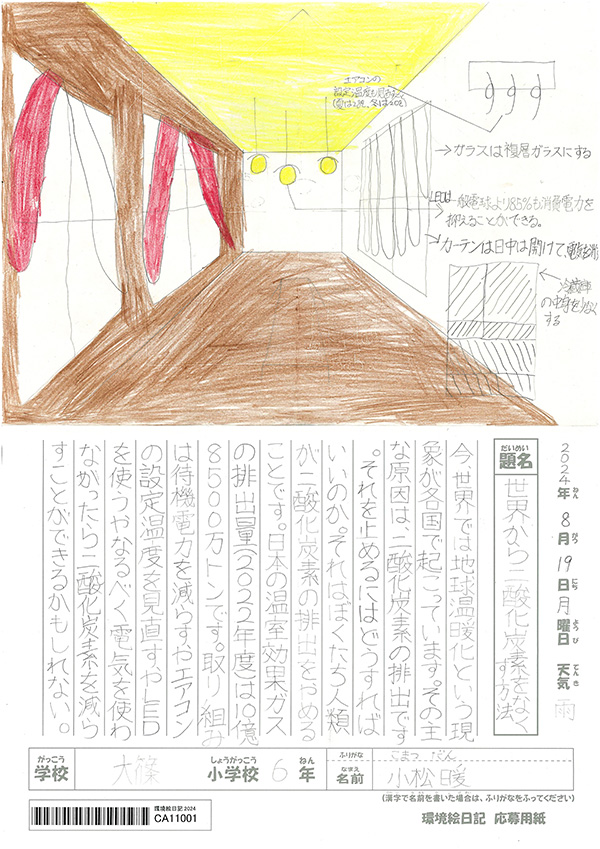 エアコンの
設定温度も見直す
→ガラスは複層ガラスにする
LEDは一般電球より85%も消費電力を
抑えることができる。
→カーテンは日中は開けて、電気を消
冷蔵庫
の中身を少なく
する
2024年ねん8月がつ19日にち月曜日ようび 天気てんき 雨
だいめい
題名
世界から二酸化炭素をなく
す方法
今、世界では地球温暖化という現
象が各国で起こっています。その主
な原因は、二酸化炭素の排出です
。それを止めるにはどうすれば
いいのか。それはぼくたち人類
が二酸化炭素の排出をおさめる
ことです。日本の温室効果ガス
の排出量(2022年度)は10億
8500万トンです。取り組み
は待機電力を減らす、やエアコン
の設定温度を見直す、やLED
を使うやなるべく電気を使わ
なかったら二酸化炭素を減ら
すことができるかもしれない。
がっこう
学校
大篠
しょうがっこう
小学校
6
ねん
年
ふりがな
なまえ
名前
こまつ だん
小松 暖
(漢字で名前を書いた場合は、ふりがなをふってください)
環境絵日記2024
CA11001
環境絵日記 応募用紙